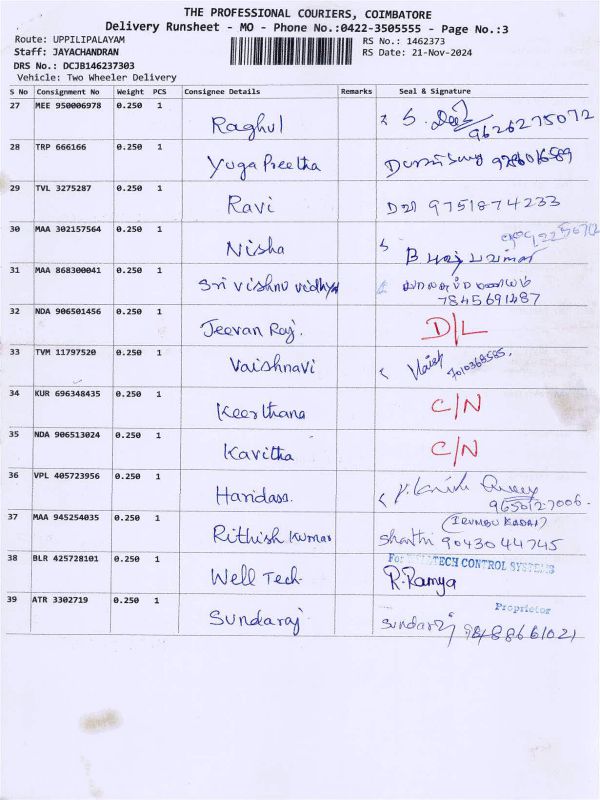 THE PROFESSIONAL COURIERS, COIMBATORE
Delivery Runsheet - MO - Phone No.:0422-3505555 - Page No.:3
Route: UPPILIPALAYAM RS No.: 1462373
Staff: JAYACHANDRAN RS Date: 21-Nov-2024
DRS No.: DCJB146237303
Vehicle: Two Wheeler Delivery
S No Consignment No Weight PCS Consignee Details Remarks Seal & Signature
27 MEE 950006978 0.250 1
Raghul S. 9626275072
28 TRP 666166 0.250 1
Yuga Preetha
29 TVL 3275287 0.250 1
Ravi 9751874233
30 MAA 302157564 0.250 1
Nisha
31 MAA 868300041 0.250 1
Sri Vishnu Vidhya
7845691487
32 NDA 906501456 0.250 1
Jeevan Raj. D/L
33 TVM 11797520 0.250 1
Vaishnavi 7010368585.
34 KUR 696348435 0.250 1
Keerthana C/N
35 NDA 906513024 0.250 1
Kavitha C/N
36 VPL 405723956 0.250 1
Haridass. 9650127006.
37 MAA 945254035 0.250 1 (IRUMBU KADAI)
Rithish Kumar Shanthi 9043044745
38 BLR 425728101 0.250 1 For WELLTECH CONTROL SYSTEMS
Well Tech R. Ramya
39 ATR 3302719 0.250 1 Proprietor
Sundaraj Sundaraj